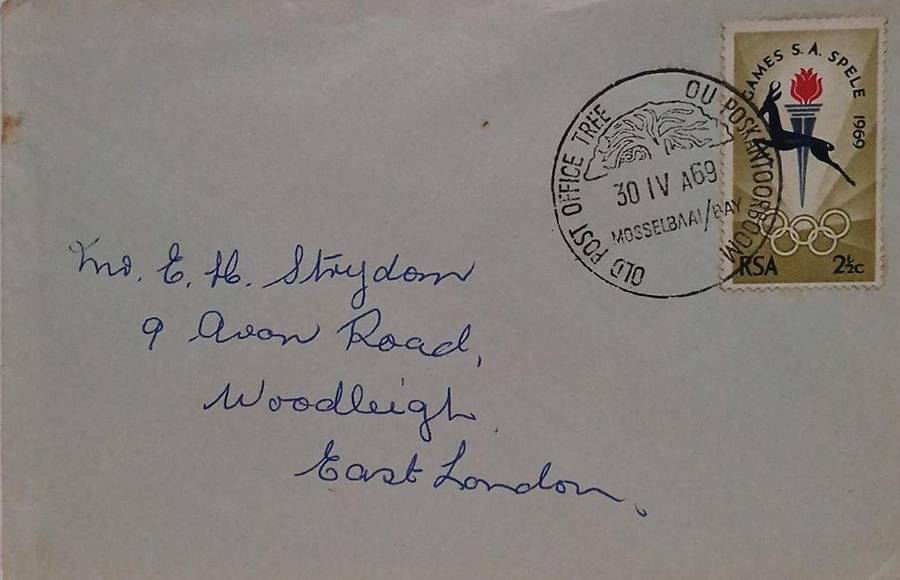 GAMES S.A. SPELE 1969
RSA 2½c
OLD POST OFFICE TREE
OU POSKANTOORBOOM
30 IV A69
MOSSELBAAI/BAY
Mrs. E. H. Strydom
9 Avon Road,
Woodleigh
East London,